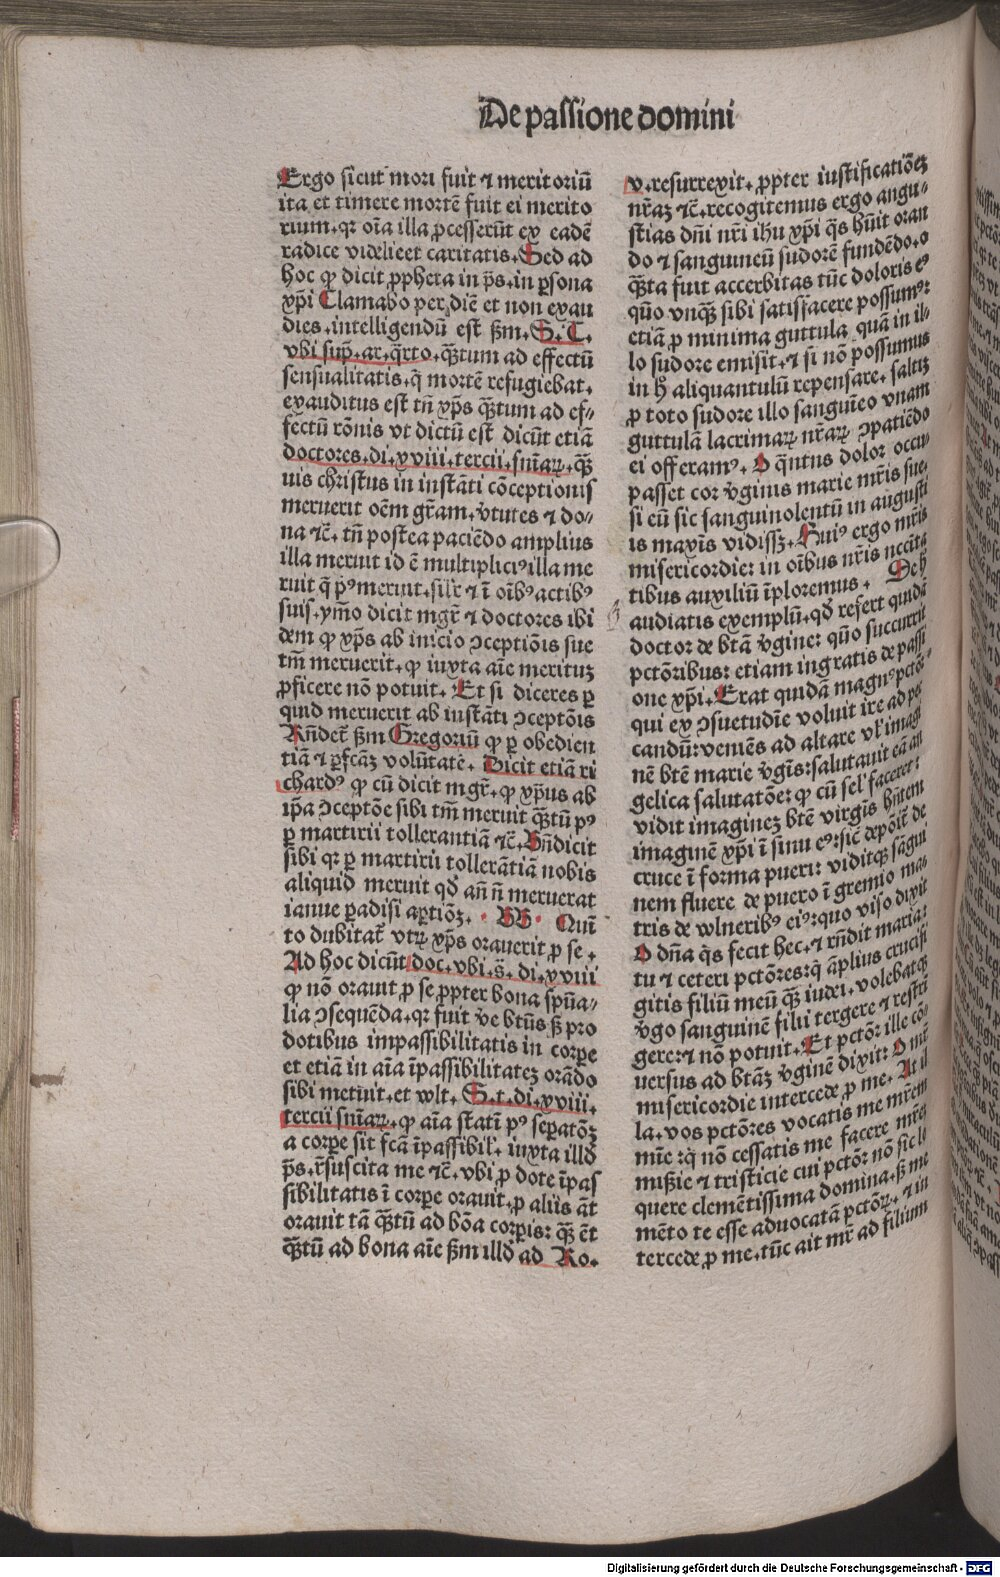 De passione domini
Ergo sicut mori fuit ⁊ meritoriū
ita et timere mortē fuit ei merito
rium. qꝛ oīa illa ꝓcesserūt ex eadē
radice videlicet caritatis. Sed ad
hoc ꝙ dicit ꝓpheta in p̄s. in ꝑsona
xp̄i Clamabo per diē et non exau
dies. intelligendū est ẜm. S. T.
vbi sup̄. ar. q̄rto. quātum ad effectū
sensualitatis. q̄ mortē refugiebat.
exauditus est tn̄ xp̄s quātum ad ef⸗
fectū rōnis vt dictū est dicūt etiā
doctores. di. xviii. tercii. sn̄iaꝝ. quā
uis christus in instāti cōceptionis
meruerit oēm gr̄am. v̓tutes ⁊ do⸗
na ⁊c̄. tn̄ postea paciēdo amplius
illa meruit id ē multiplici⁹ illa me
ruit q̄ p⁹ meruit. silr̄ ⁊ ī oīb⁹ actib⁹
suis. ymo dicit mgr̄ ⁊ doctores ibi
dem ꝙ xp̄s ab inicio ꝯceptiōis sue
tm̄ meruerit. ꝙ iuxta aīe merituꝫ
ꝓficere nō potuit. Et si diceres ꝑ
quid meruerit ab instāti ꝯceptōis
Rn̄det̄ ẜm Gregoriū ꝙ ꝑ obedien
tiā ⁊ ꝑfcāꝫ volūtatē. Dicit etiā ri
chard⁹ ꝙ cū dicit mgr̄. ꝙ xp̄us ab
ip̄a ꝯceptōe sibi tm̄ meruit quātū p⁹
ꝑ martirii tollerantiā ⁊c̄. Rn̄dicit
sibi qꝛ ꝑ martiriū tollerātiā nobis
aliquid meruit qd̄ an̄ n̄ meruerat
ianue ꝑadisi aꝑtiōꝫ. Quī
to dubitat̄ vtꝝ xp̄s orauerit ꝓ se.
Ad hoc dicūt doc. vbi. s̄. di. xviii
ꝙ nō orauit ꝓ se ꝓpter bona spūa⸗
lia ꝯsequēda. qꝛ fuit ve̓ btūs ẜꝫ pro
dotibus impassibilitatis in corꝑe
et etiā in aīa īpassibilitateꝫ orādo
sibi metiuit. et wlt. S. t. di. xviii.
tercii sn̄iaꝝ. ꝙ aīa statī p⁹ seꝑatōꝫ
a corꝑe sit fcā īpassibil̓. iuxta illd̄
p̄s. r̄suscita me ⁊c̄. vbi ꝓ dote īpas
sibilitatis ī corꝑe orauit. ꝓ aliis āt
orauit tā quātū ad bōa corꝑis: quā ēt
quātū ad bona aīe ẜm illd̄ ad Ro.
v. resurrexit. ꝓpter iustificatiōeꝫ
nr̄aꝫ ⁊c̄. recogitemus ergo angu⸗
stias dn̄i nr̄i ihu xp̄i q̄s hūit oran
do ⁊ sanguineū sudorē fundēdo. o
quāta fuit accerbitas tūc doloris e⁹
quō vnquā sibi satisfacere possum⁹:
etiā ꝓ minima guttula quā in il⸗
lo sudore emisit. ⁊ si nō possumus
in h̄ aliquantulū repensare. saltiꝫ
ꝓ toto sudore illo sanguīeo vnam
guttulā lacrimaꝝ nr̄aꝝ ꝯpatiēdo
ei offeram⁹. O q̄ntus dolor occu⸗
passet cor v̓ginis marie mr̄is sue.
si eū sic sanguinolentū in augusti
is maxīs vidissꝫ. Hui⁹ ergo mr̄is
misericordie: in oībus nr̄is necīta
tibus auxiliū īploremus. De h̄
audiatis exemplū. qd̄ refert quidā
doctor de btā v̓gine: quō succurrit
pctōribus: etiam ingratis de passi
one xp̄i. Erat quidā magn⁹ pctōr.
qui ex ꝯsuetudīe voluit ire ad pec
candū: veniēs ad altare vl̓ imagi
nē btē marie v̓gīs: salutauit eā an
gelica salutatōe: ꝙ cū sel̓ faceret:
vidit imagineꝫ btē virgīs hn̄tem
imaginē xp̄i ī sinu e⁹: sic̄ depōit̄ de
cruce ī forma pueri: viditqꝫ sāgui
nem fluere de puero ī gremio ma⸗
tris de wlnerib⁹ ei⁹: quo viso dixit
O dn̄a q̄s fecit hec. ⁊ rn̄dit maria:
tu ⁊ ceteri pctōres: q̄ āplius crucifi
gitis filiū meū quā iudei. volebatqꝫ
v̓go sanguinē filii tergere ⁊ restrī
gere: ⁊ nō potuit. Et pctōꝛ ille cō⸗
uersus ad btāꝫ v̓ginē dixit: O mr̄
misericordie intercede ꝓ me. At il
la. vos pctōres vocatis me mr̄em
mīe: q̄ nō cessatis me facere mr̄eꝫ
misẜie ⁊ tristicie cui pctōꝛ nō sic lo
quere clemētissima domina. ẜꝫ me
mēto te esse aduocatā pctōꝝ. ⁊ in
tercede ꝓ me. tūc ait mr̄ ad filium
Digitalisierung gefördert durch die Deutsche Forschungsgemeinschaft - DFG